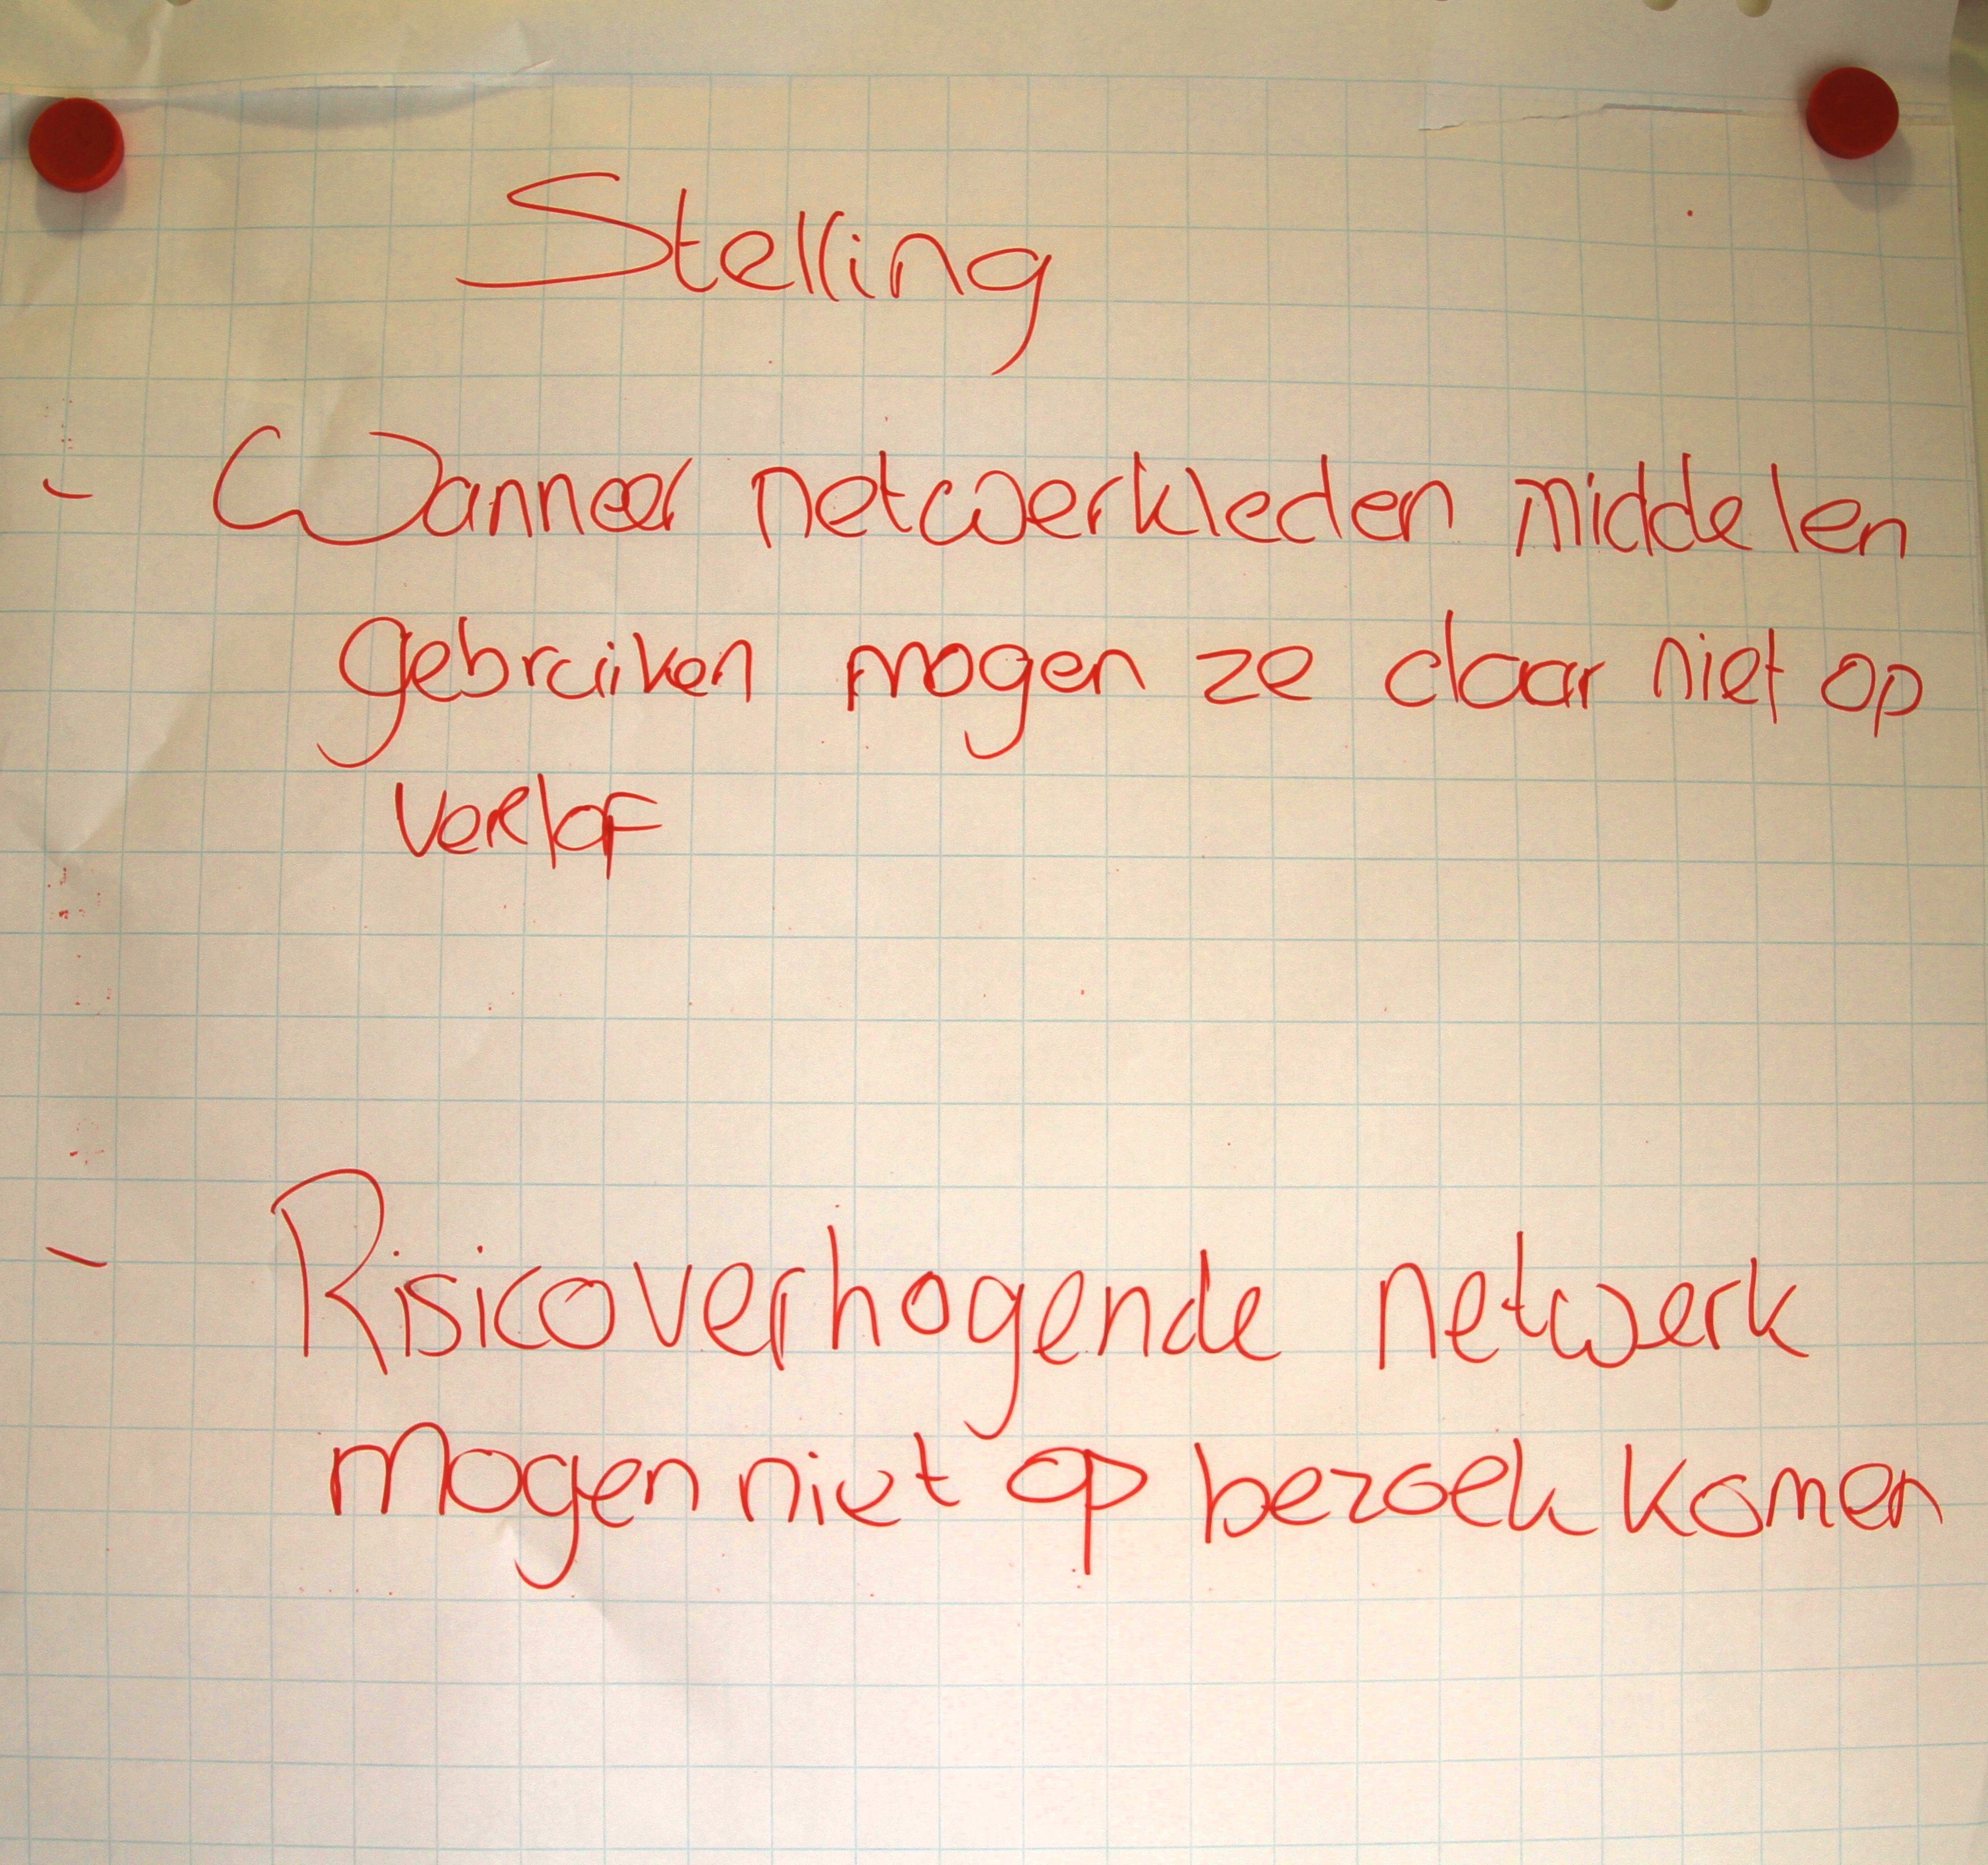 Stelling
- Wanneer netwerkleden middelen
gebruiken mogen ze daar niet op
verlof
- Risicoverhogende netwerk
mogen niet op bezoek komen